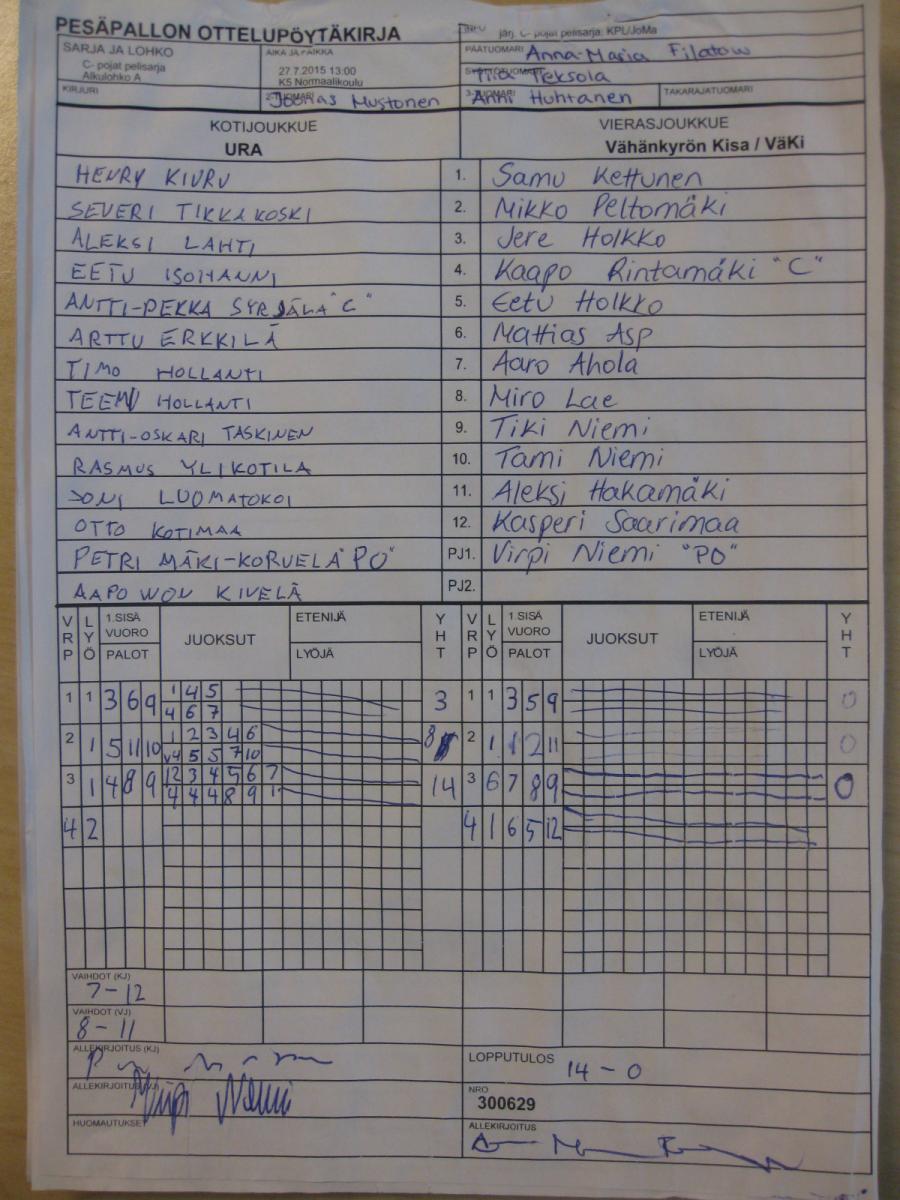 PESÄPALLON OTTELUPÖYTÄKIRJA
INFO järj. C- pojat pelisarja: KPL/JoMa
SARJA JA LOHKO
C- pojat pelisarja
Alkulohko A
AIKA JA PAIKKA
27.7.2015 13:00
K5 Normaalikoulu
PÄÄTUOMARI Anna-Maria Filatow
Tiia Teksola
KIRJURI
Joonas Mustonen
3-TUOMARI Anni Huhtanen
TAKARAJATUOMARI
KOTIJOUKKUE
URA
VIERASJOUKKUE
Vähänkyrön Kisa / VäKi
HENRY KIURU 1. Samu Kettunen
SEVERI TIKKAKOSKI 2. Mikko Peltomäki
ALEKSI LAHTI 3. Jere Holkko
EETU ISOHANNI 4. Kaapo Rintamäki "C"
ANTTI-PEKKA SYRJÄLÄ "C" 5. Eetu Holkko
ARTTU ERKKILÄ 6. Mattias Asp
TIMO HOLLANTI 7. Aaro Ahola
TEEMU HOLLANTI 8. Miro Lae
ANTTI-OSKARI TASKINEN 9. Tiki Niemi
RASMUS YLIKOTILA 10. Tami Niemi
JONI LUOMATOKOI 11. Aleksi Hakamäki
OTTO KOTIMAA 12. Kasperi Saarimaa
PETRI MÄKI-KORVELA "PO" PJ1. Virpi Niemi "PO"
AAPO KIVELÄ PJ2.
VRP LYÖ 1.SISÄ VUORO PALOT JUOKSUT ETENIJÄ LYÖJÄ YHT VRP LYÖ 1.SISÄ VUORO PALOT JUOKSUT ETENIJÄ LYÖJÄ YHT
1 1 3 6 9 1 4 5 3 1 1 3 5 9 0
4 6 7
2 1 5 11 10 1 2 3 4 6 8 2 1 1 2 11 0
v4 5 5 7 10
3 1 4 8 9 12 3 4 5 6 7 14 3 6 7 8 9 0
4 4 4 8 9
4 2 4 1 6 5 12
VAIHDOT (KJ)
7-12
VAIHDOT (VJ)
8-11
ALLEKIRJOITUS (KJ)
LOPPUTULOS 14-0
ALLEKIRJOITUS (VJ) Virpi Niemi
NRO
300629
HUOMAUTUKSET
ALLEKIRJOITUS